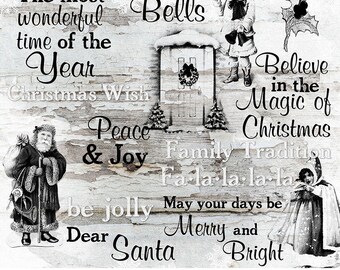 The most
wonderful
time of the
Year
Bells
Christmas Wish
Believe
in the
Magic of
Christmas
Peace
& Joy
Family Tradition
Fa-la-la-la-la
be jolly
May your days be
Merry and
Bright
Dear
Santa